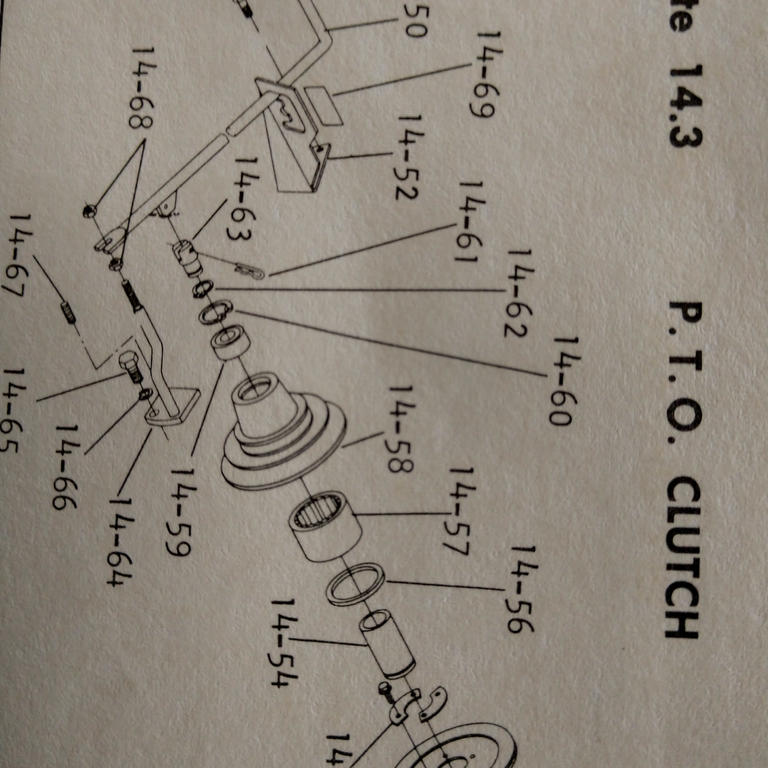 te 14.3 P.T.O. CLUTCH
50
14-69
14-52
14-68
14-63
14-61
14-62
14-60
14-67
14-58
14-65
14-57
14-66
14-59
14-56
14-64
14-54
14